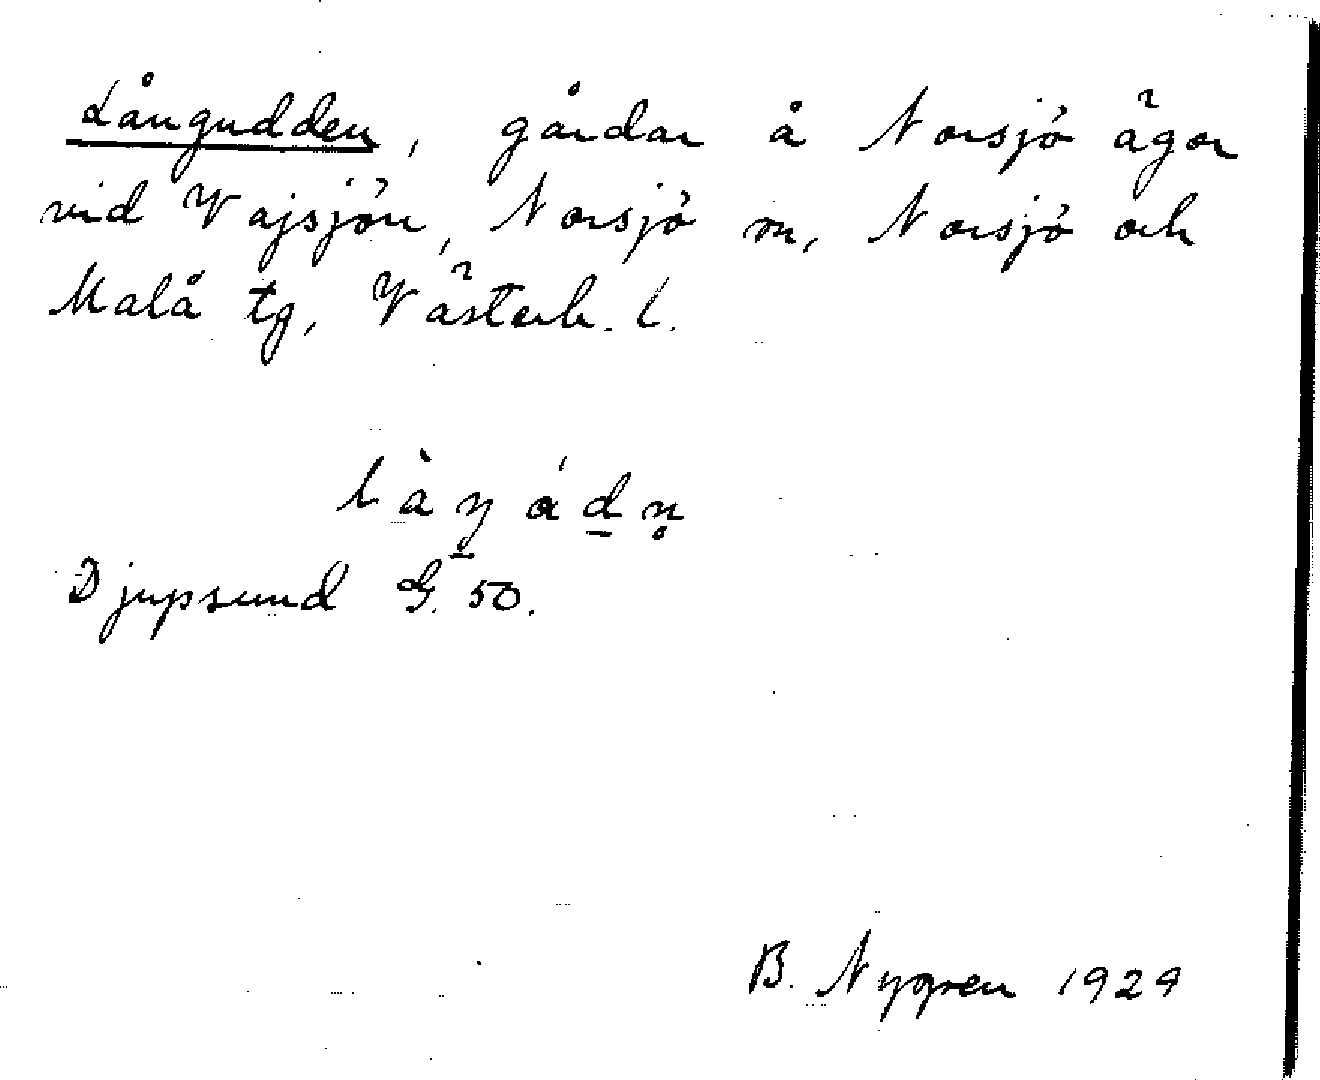 Långudden, gårdar å Norsjö ägor
vid Vajsjön, Norsjö sn, Norsjö och
Malå tg, Västerb. l.
làŋádn̥
Djupsund G. 50.
B. Nygren 1929